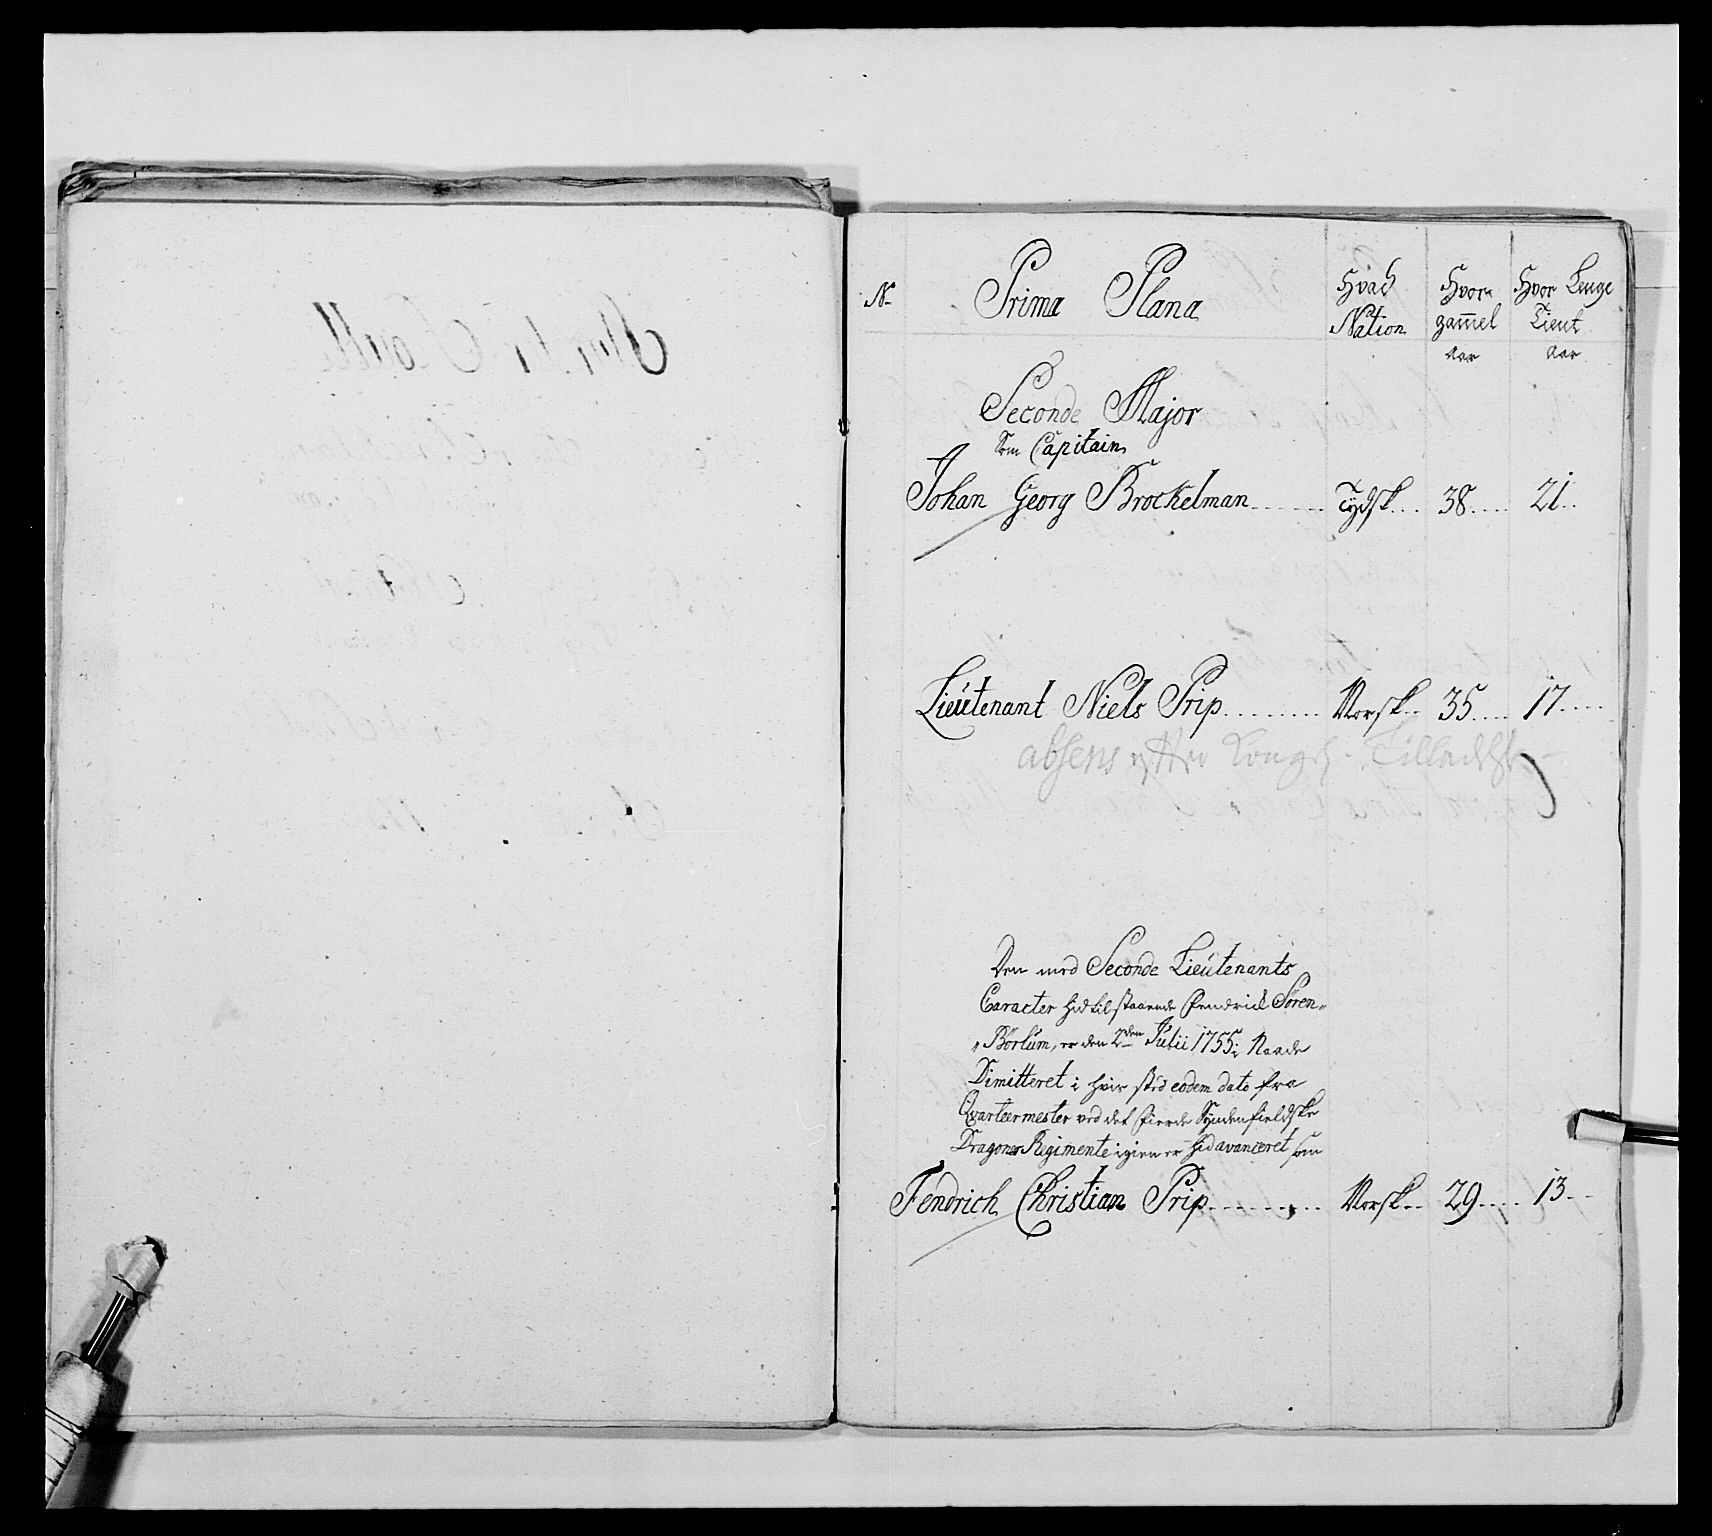 No
Prima Plana
Hvad Nation
Hvor gam̄el Aar
Hvor Lenge Tient Aar
Seconde Major
Som Capitain
Johan Georg Brockelman Tydsk 38 21
Lieutenant Niels Prip Norsk 35 17
absens efter Kongl. Tilladelse
Den med Seconde Lieutenants
Caracter hidtil staaende Fendrich Søren
Børlum, er den 2den Julii 1755 i Naade
Dimitteret i hvis sted eodem dato fra
Qvarteermester ved det fierde Synden fieldske
Dragoner Regimente igien er hid avanceret som
Fendrich Christian Prip Norsk 29 13